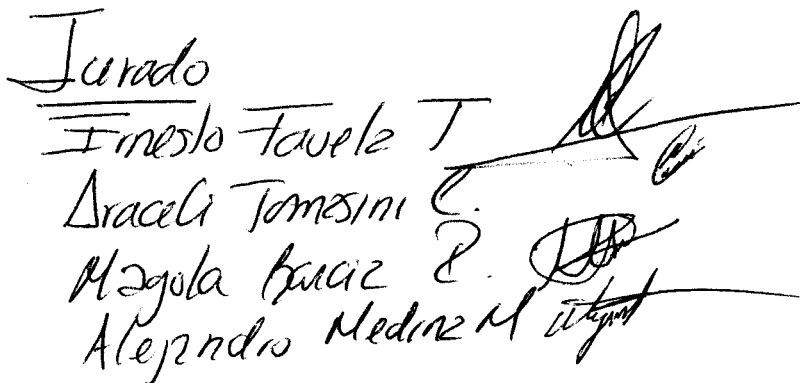 Jurado
Ernesto Favela T
Araceli Tomesini C.
Magola Barciz R.
Alejandro Medina M